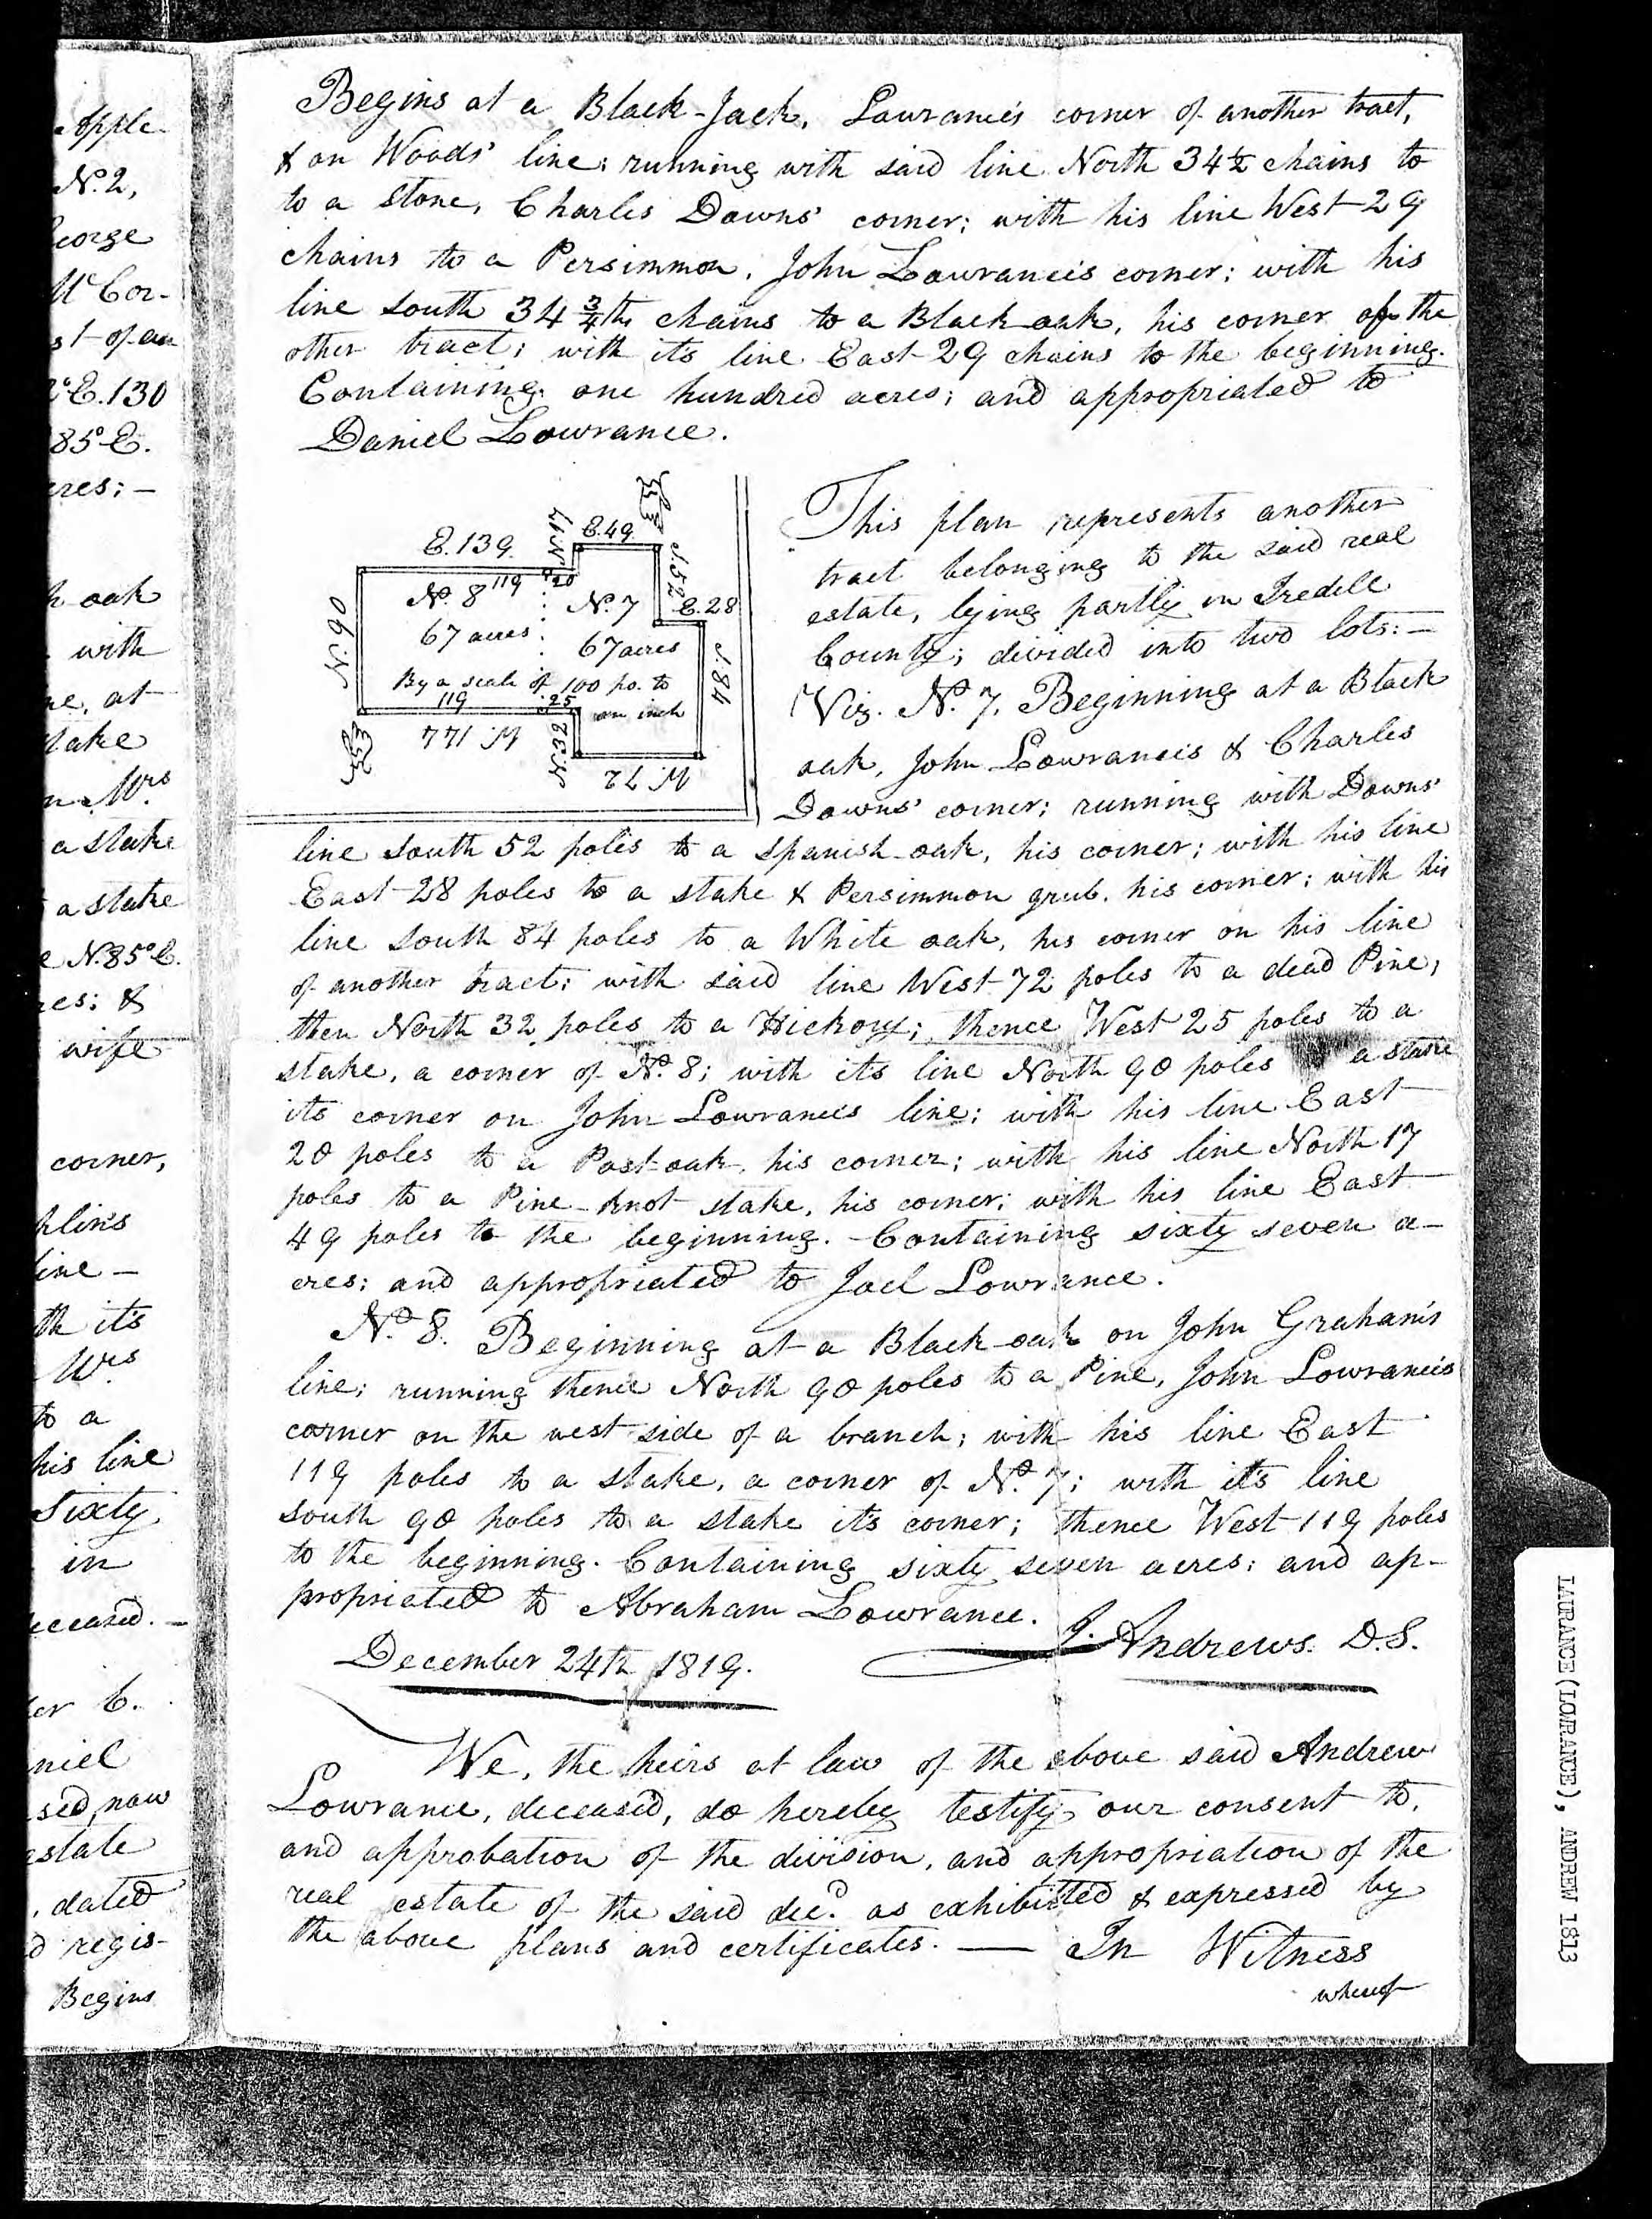 Apple-
No. 2,
eorge
McCor-
st of an
2° E. 130
85° E.
cres; —
k oak
with
ne, at
take
n Mrs
a stake
a stake
e N. 85° E.
res; &
wife
corner,
hlin's
line —
th it's
Mrs
to a
his line
Sixty
in
eceased. —
er C.
niel
sed, now
estate
, dated
d regis-
Begins
Begins at a Black-Jack, Lowrance's corner of another tract,
& on Woods' line; running with said line North 34½ chains to
to a stone, Charles Downs' corner; with his line West 29
chains to a Persimmon, John Lowrance's corner; with his
line south 34 3/4ths chains to a Black oak, his corner of the
other tract; with it's line East 29 chains to the beginning.
Containing one hundred acres; and appropriated to
Daniel Lowrance.
E. 139.
N. 17
E. 49
S. 52
No. 8 119
20
No. 7
E. 28
N. 90
67 acres
67 acres
S. 84
By a scale of 100 po. to
an inch
119
25
W. 144
N. 32
W. 72
This plan represents another
tract belonging to the said real
estate, lying partly in Iredell
County; divided into two lots: —
Viz. No. 7. Beginning at a Black
oak, John Lowrance's & Charles
Downs' corner; running with Downs'
line south 52 poles to a spanish-oak, his corner; with his line
East 28 poles to a stake & Persimmon grub, his corner; with his
line south 84 poles to a White oak, his corner on his line
of another tract; with said line West 72 poles to a dead Pine;
then North 32 poles to a Hickory; thence West 25 poles to a
stake, a corner of No. 8; with it's line North 90 poles a stake
its corner on John Lowrance's line; with his line East
20 poles to a Post-oak, his corner; with his line North 17
poles to a Pine-knot stake, his corner; with his line East
49 poles to the beginning. — Containing sixty seven a-
cres; and appropriated to Joel Lowrance.
No. 8. Beginning at a Black-oak on John Graham's
line; running thence North 90 poles to a Pine, John Lowrance's
corner on the west side of a branch; with his line East
119 poles to a stake, a corner of No. 7; with it's line
south 90 poles to a stake it's corner; thence West 119 poles
to the beginning. Containing sixty seven acres; and ap-
propriated to Abraham Lowrance.
J. Andrews. D.S.
December 24th 1819.
We, the heirs at law of the above said Andrew
Lowrance, deceased, do hereby testify our consent to,
and approbation of the division, and appropriation of the
real estate of the said decd. as exhibited & expressed by
the above plans and certificates. — In Witness
whereof
LAIRANCE(LOWRANCE), ANDREW 1813